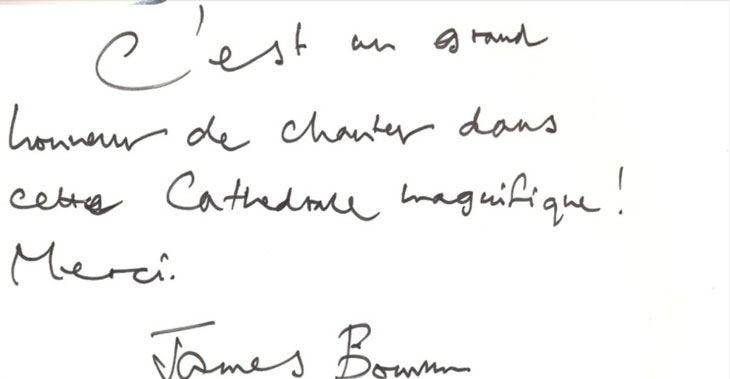 C'est un grand
honneur de chanter dans
cette Cathedrale magnifique!
Merci.
James Bowman